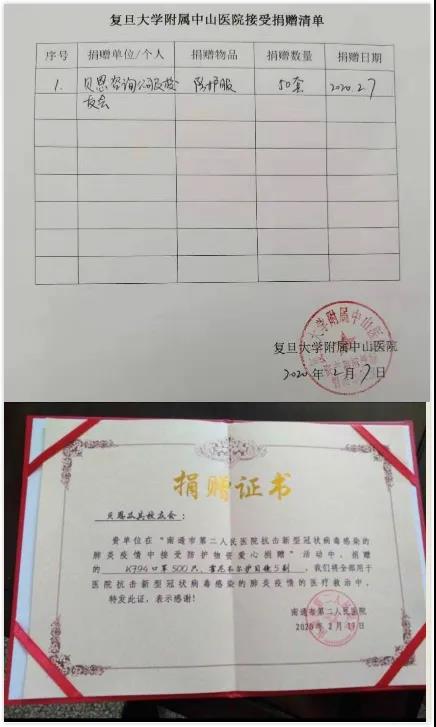 复旦大学附属中山医院接受捐赠清单
序号 捐赠单位/个人 捐赠物品 捐赠数量 捐赠日期
1. 贝恩咨询公司及校 防护服 50套 2020.2.7
友会
复旦大学附属中山医院
2020年2月7日
捐赠证书
贝恩及其校友会:
贵单位在“南通市第二人民医院抗击新型冠状病毒感染的
肺炎疫情中接受防护物资爱心捐赠”活动中,捐赠
的 KF94口罩500只、霍尼韦尔护目镜5副 ,我们将全部用于
医院抗击新型冠状病毒感染的肺炎疫情的医疗救治中。
特发此证,表示感谢!
南通市第二人民医院
2020年2月